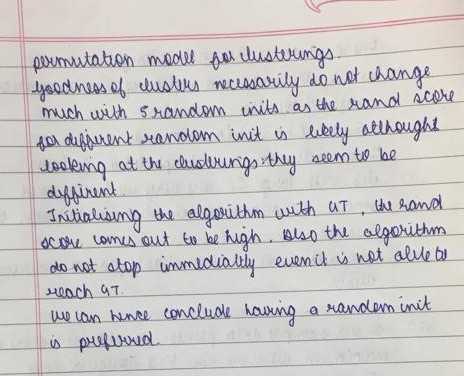 permutation model for clusterings.
goodness of clusters necessarily do not change
much with 5 random inits as the rand score
for different random init is likely atthought
looking at the clusterings they seem to be
diffirent.
Initialising the algorithm with GT, the rand
score comes out to be high. Also the algorithm
do not stop immediately even it is not able to
reach GT.
We can hence conclude having a random init
is preferred.